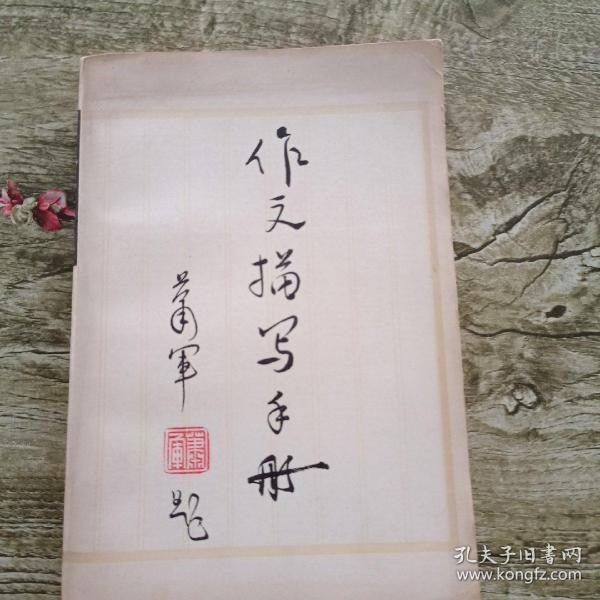 作文描写手册
萧军
萧军
题
孔夫子旧書网
www.kongfz.com